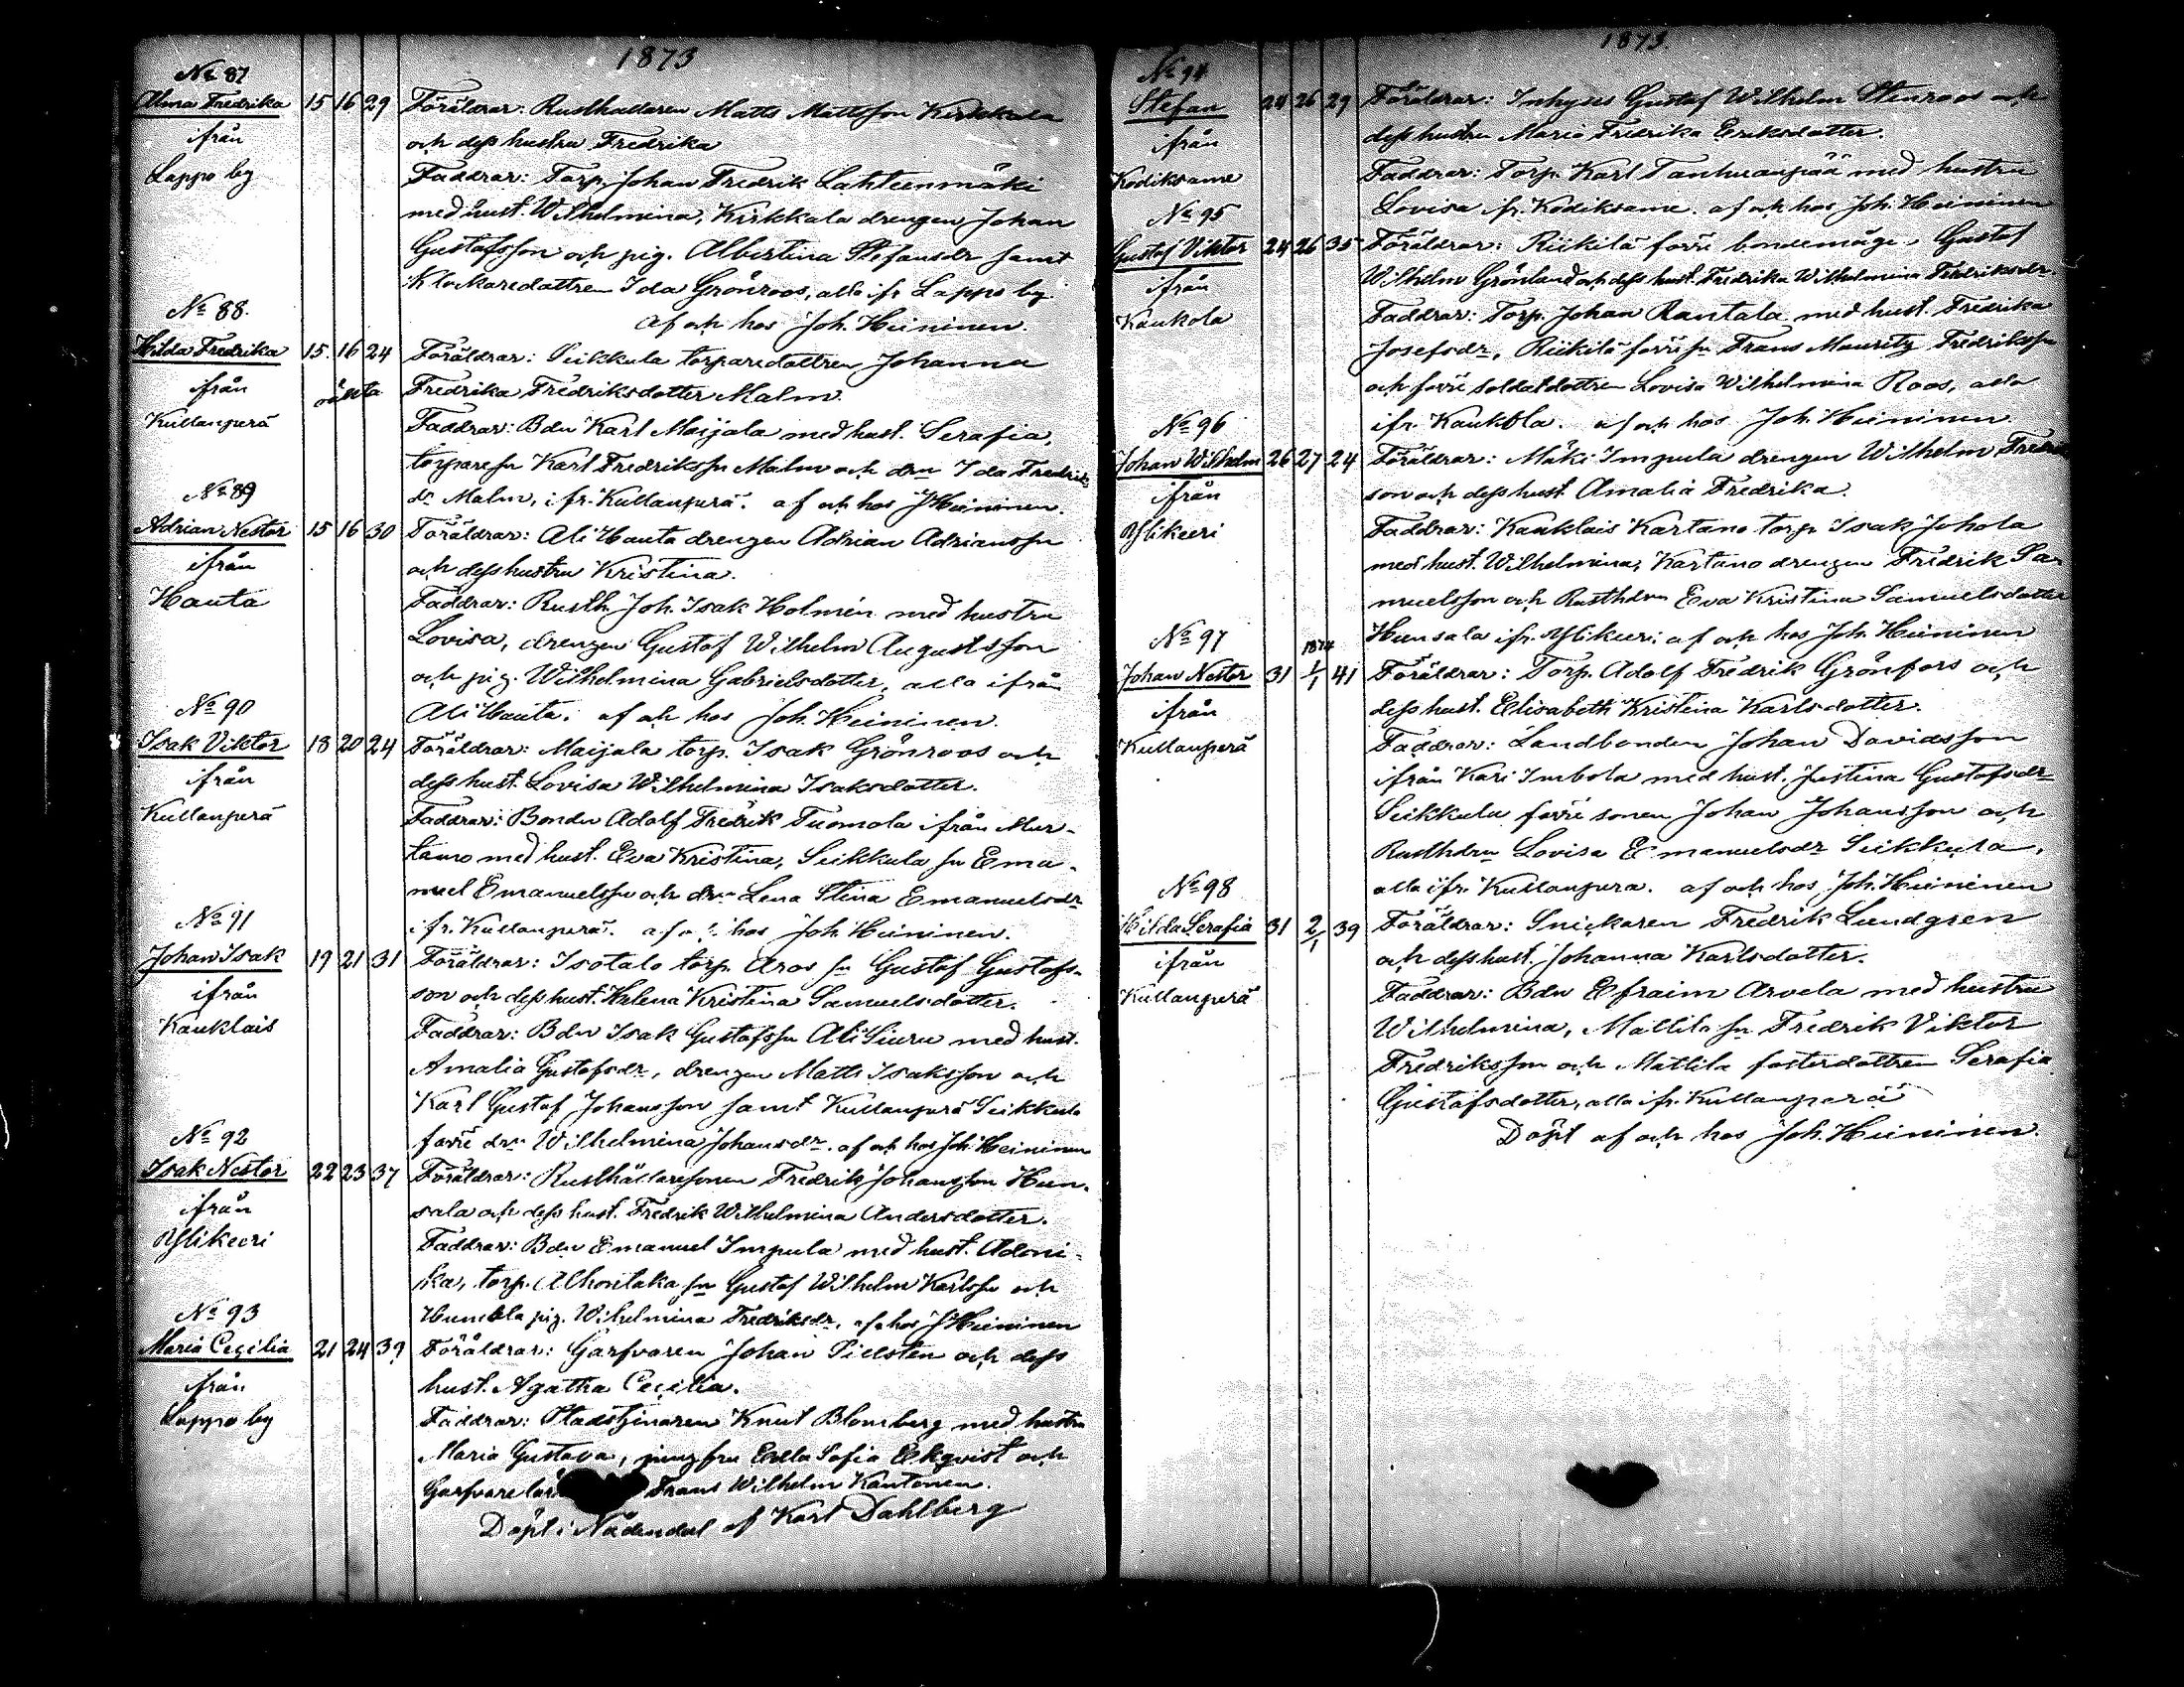 1873
No 87
Alma Fredrika 15 16 29 Föräldrar: Rusthallaren Matts Mattsson Kirkkala
ifrån och dess hustru Fredrika
Lappo by Faddrar: Torp. Johan Fredrik Lahteenmäki
med hust. Wilhelmina, Kirkkala drengen Johan
Gustafsson och pig. Albertina Stefansdr samt
Klockaredottren Ida Grönroos, alla ifr Lappo by
af och hos Joh. Heininen.
No 88.
Hilda Fredrika 15 16 24 Föräldrar: Seikkula torparedottren Johanna
ifrån oäkta Fredrika Fredriksdotter Malm.
Kullanperä Faddrar: Bdn Karl Maijala med hust. Serafia,
torparesn Karl Fredrikssn Malm och drn Ida Fredriks
dr Malm, ifr. Kullanperä. af och hos J Heininen.
No 89
Adrian Nestor 15 16 30 Föräldrar: Ali Hauta drengen Adrian Adrianssn
ifrån och dess hustru Kristina.
Hauta Faddrar: Rusth. Joh. Isak Holmén med hustru
Lovisa, drengen Gustaf Wilhelm Augustsson
och pig. Wilhelmina Gabrielsdotter, alla ifrån
Ali Hauta. af och hos Joh. Heininen.
No 90
Isak Viktor 18 20 24 Föräldrar: Maijala torp. Isak Grönroos och
ifrån dess hust. Lovisa Wilhelmina Isaksdotter.
Kullanperä Faddrar: Bonden Adolf Fredrik Tuomola ifrån Mur-
tamo med hust. Eva Kristina, Seikkula sn Ema-
nuel Emanuelssn och drn Lena Stina Emanuelsdr
ifr. Kullanperä. af och hos Joh. Heininen.
No 91
Johan Isak 19 21 31 Föräldrar: Isotalo torp. Aros sn Gustaf Gustafs-
ifrån son och dess hust. Helena Kristina Samuelsdotter.
Kauklais Faddrar: Bdn Isak Gustafssn Ali Siuru med hust.
Amalia Gustafsdr, drengen Matts Isaksson och
Karl Gustaf Johansson samt Kullanperä Seikkula
förre drn Wilhelmina Johansdr. af och hos Joh. Heininen
No 92
Isak Nestor 22 23 37 Föräldrar: Rusthållaresonen Fredrik Johansson Hun-
ifrån sala och dess hust. Fredrik Wilhelmina Andersdotter.
Ylikeeri Faddrar: Bdn Emanuel Impula med hust. Adoni-
ka, torp. Alhontaka sn Gustaf Wilhelm Karlssn och
pig. Wilhelmina Fredriksdr, af o hos J Heininen
No 93
Maria Cecilia 21 24 39 Föräldrar: Garfvaren Johan Sielsten och dess
ifrån hust. Agatha Cecilia.
Lappo by Faddrar: Stadstjinaren Knut Blomberg med hustru
Maria Gustava, jungfru Edla Sofia Ekqvist och
Garfvare Frans Wilhelm Kantonen.
Döpt i Nådendal af Karl Dahlberg
1873.
No 94
Stefan 24 26 29 Föräldrar: Inhyses Gustaf Wilhelm Stenroos och
ifrån dess hustru Maria Fredrika Eriksdotter.
Kodiksame Faddrar: Torp. Karl Tanhuanpää med hustru
Lovisa ifr. Kodiksame. af och hos Joh. Heininen
No 95
Gustaf Viktor 24 26 35 Föräldrar: Riikilä förre bondemåge. Gustaf
ifrån Wilhelm Grönlund och dess hust. Fredrika Wilhelmina Fredriksdr.
Kaukola Faddrar: Torp. Johan Rantala med hust. Fredrika
Josefsdr, Riikilä förre sn Frans Mauritz Fredrikssn
och förre soldatdottren Lovisa Wilhelmina Roos, alla
ifr. Kaukola. af och hos Joh. Heininen.
No 96
Johan Wilhelm 26 27 24 Föräldrar: Mäki Impula drengen Wilhelm Fredrik
ifrån son och dess hust. Amalia Fredrika.
Ylikeeri Faddrar: Kauklais Kartano torp. Isak Johola
med hust. Wilhelmina, Kartano drengen Fredrik Sa-
muelsson och Rusthdrn Eva Kristina Samuelsdotter
Hunsala ifr. Ylikeeri af och hos Joh. Heininen
No 97 1874
Johan Nestor 31 1/1 41 Föräldrar: Torp. Adolf Fredrik Grönfors och
ifrån dess hust. Elisabeth Kristina Karlsdotter.
Kullanperä Faddrar: Landbonden Johan Davidsson
ifrån Kari Imbola med hust. Justina Gustafsdr
Seikkula förre sonen Johan Johansson och
Rusthdrn Lovisa Emanuelsdr Seikkula,
alla ifr. Kullanperä. af och hos Joh. Heininen
No 98
Hilda Serafia 31 2/1 39 Föräldrar: Snickaren Fredrik Lundgren
ifrån och dess hust. Johanna Karlsdotter.
Kullanperä Faddrar: Bdn Efraim Arvela med hustru
Wilhelmina, Mattila sn Fredrik Viktor
Fredriksson och Mattila fosterdottren Serafia
Gustafsdotter, alla ifr. Kullanperä
Döpt af och hos Joh. Heininen.